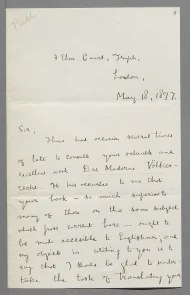 3 Elm Court, Temple,
London,
May 18, 1897.
Sir,
I have had occasion several times
of late to consult your valuable and
excellent work Das Moderne Völker-
recht. It has occurred to me that
your book – so much superior to
many of those on the same subject
which find current here – ought to
be made accessible to Englishmen, and
my object in writing to you is to
say that I should be glad to under-
take the task of translating your